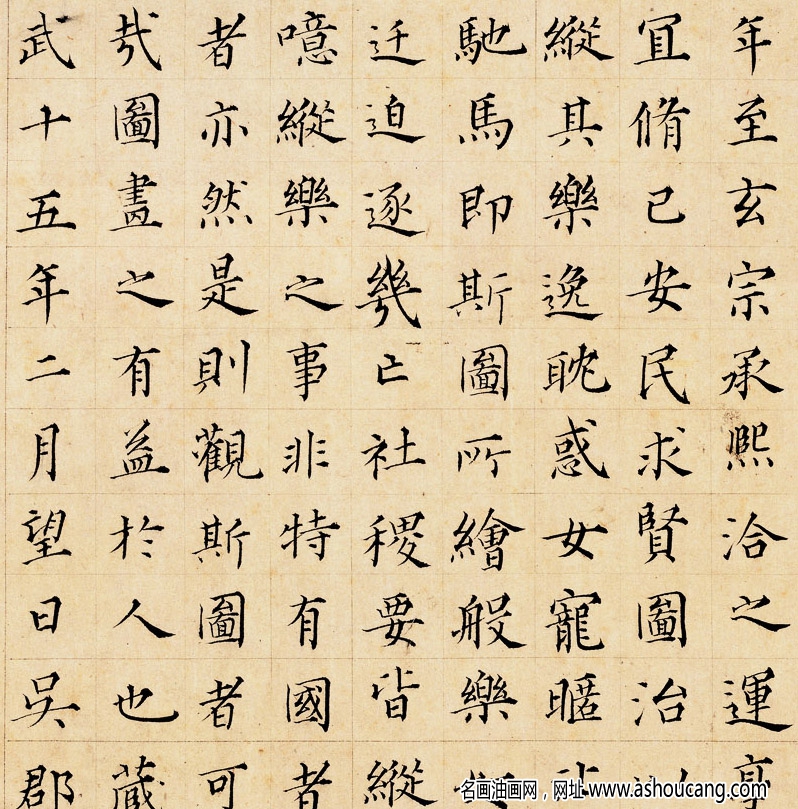 年至玄宗承熙洽之運享
宜脩己安民求賢圖治
縱其樂逸耽惑女寵暱
馳馬即斯圖所繪般樂
迁迫逐幾亡社稷要皆縱
噫縱樂之事非特有國者
者亦然是則觀斯圖者可
哉圖畫之有益於人也藏
武十五年二月望日吳郡
名画油画网，网址 www.ashoucang.com